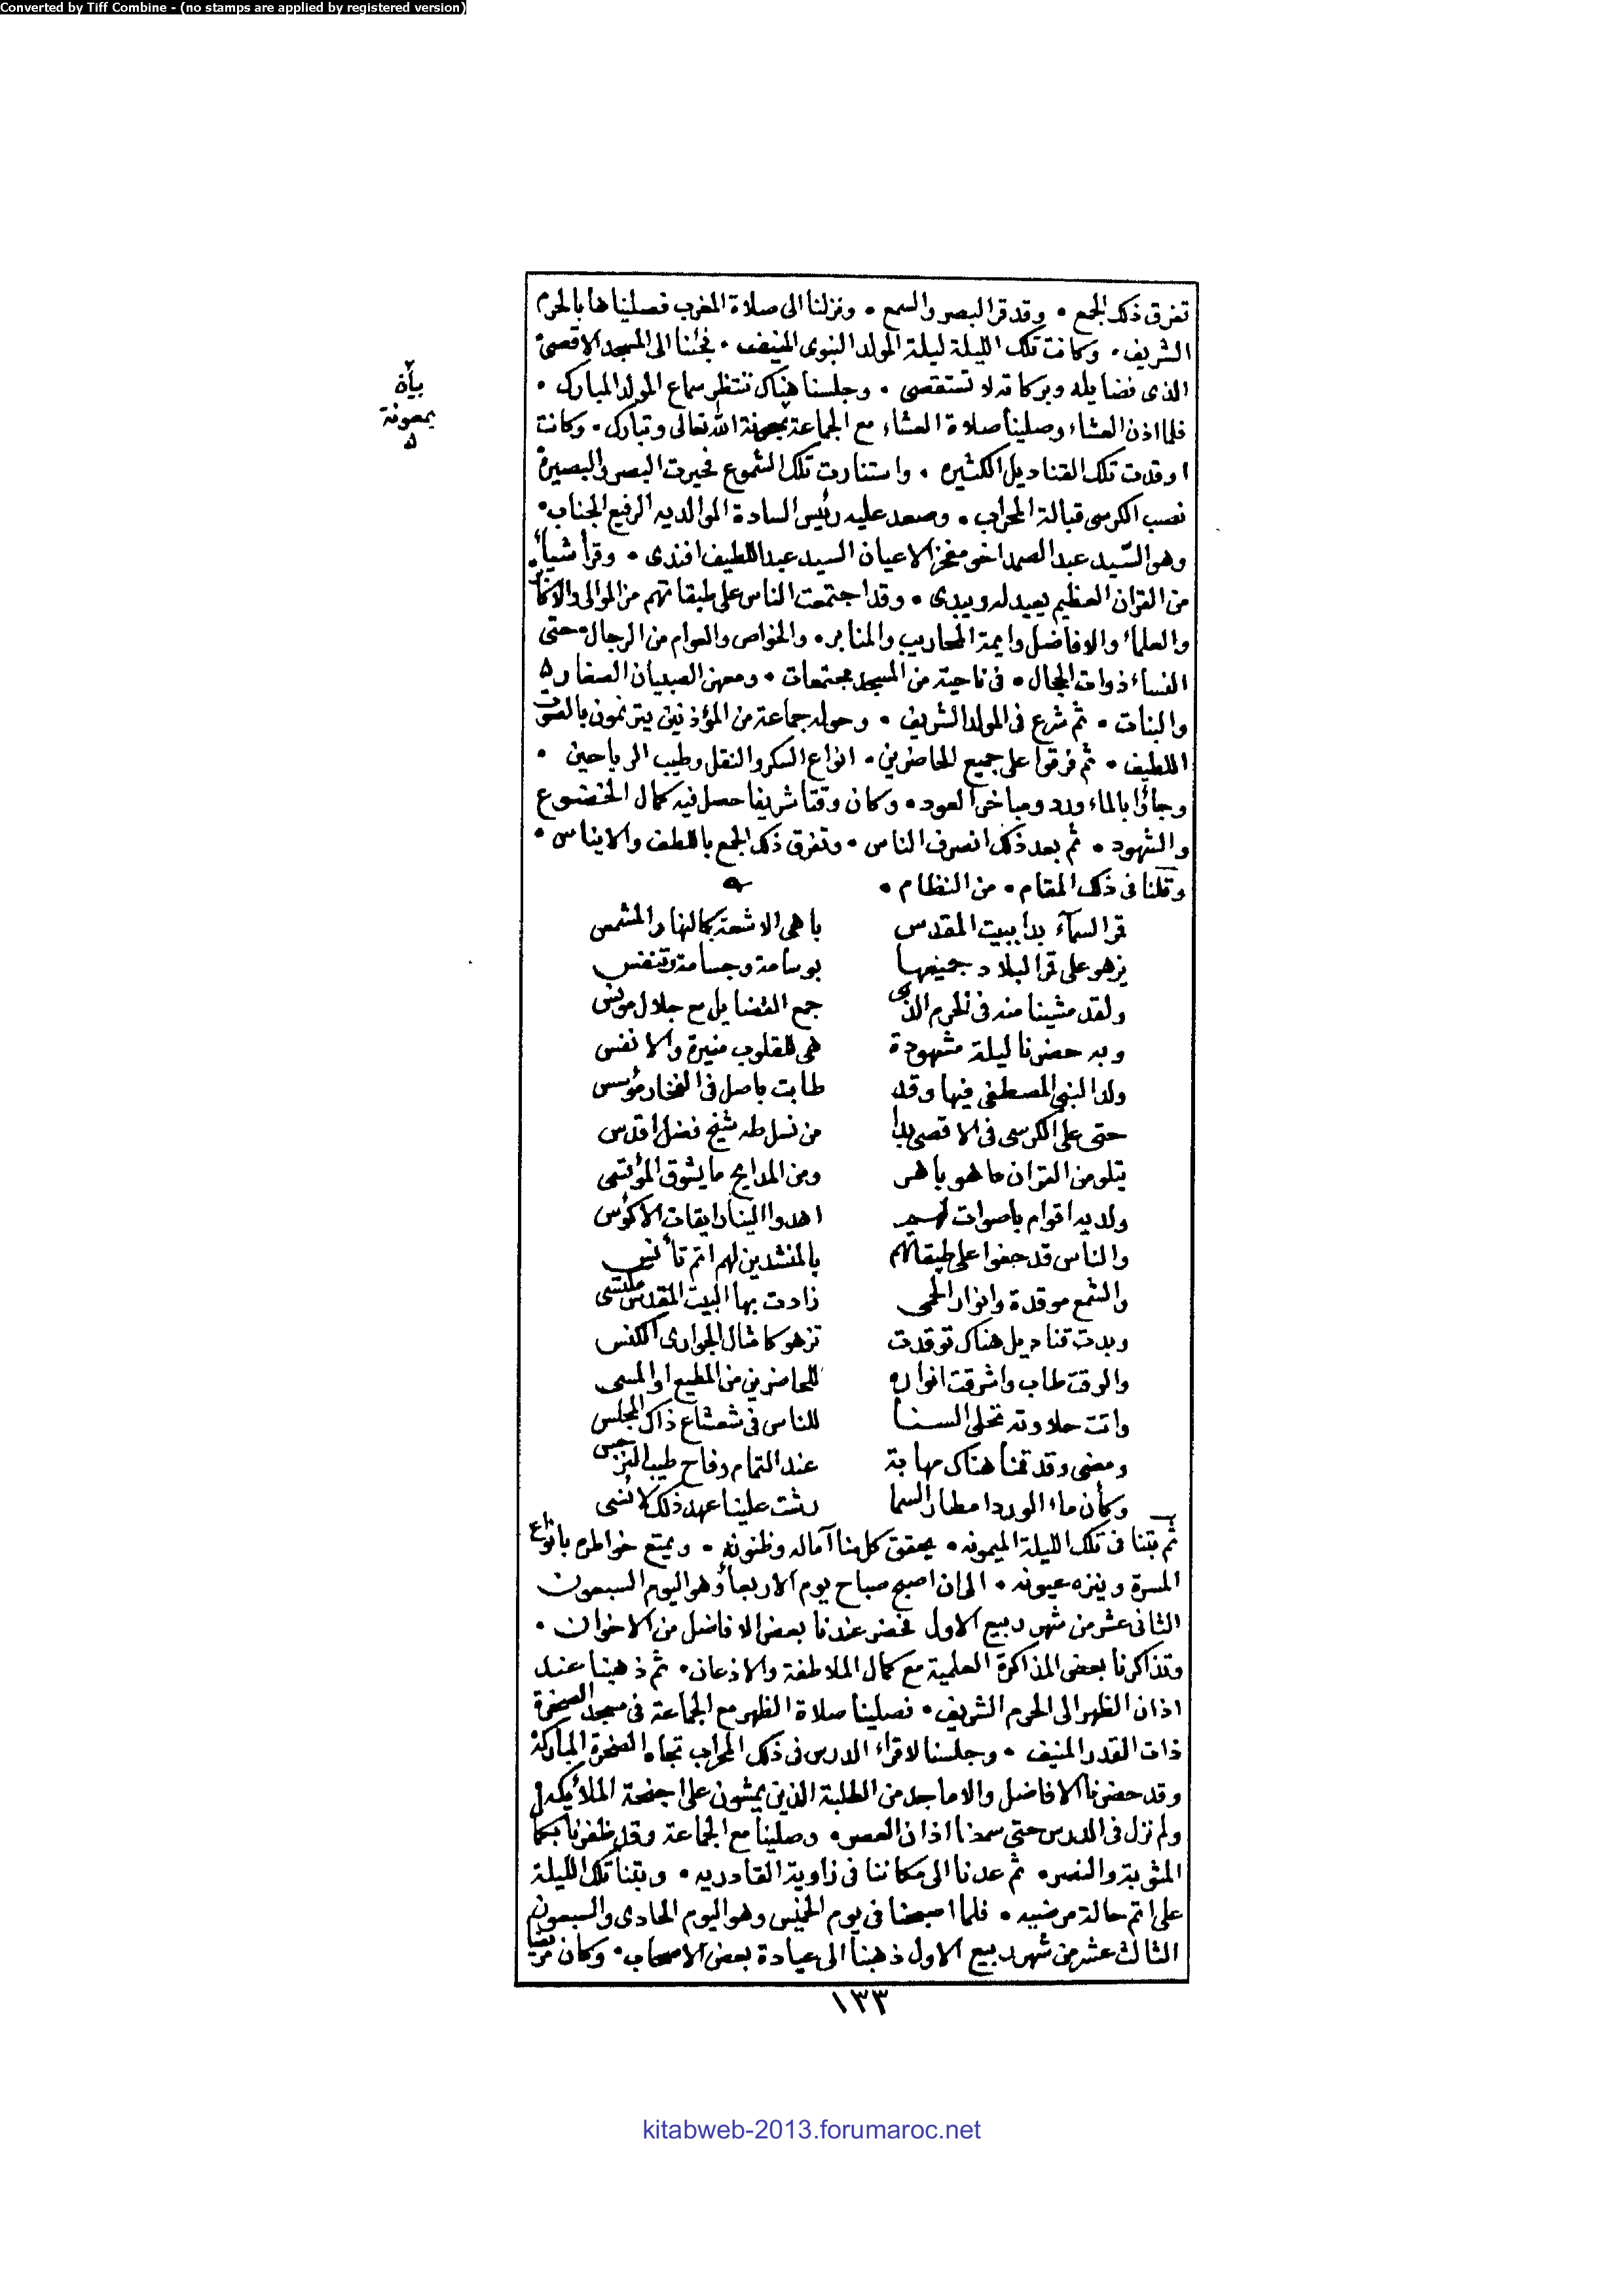 Converted by Tiff Combine - (no stamps are applied by registered version)
تفرق ذلك الجمع • وقد قر البصر والسمع • ونزلنا الى صلاة المغرب فصليناها بالحرم
الشريف • وكانت تلك الليلة ليلة المولد النبوى المنيف • فجئنا الى المسجد الاقصى
الذى فضايله وبركاته لا تستقصى • وجلسنا هناك ننتظر سماع المولد المبارك •
فلما اذن العشاء وصلينا صلاة العشاء مع الجماعة بمعونة الله تعالى وتبارك • وكانت
بيان
بمعونة
اوقدت تلك القناديل الكثيره • واستنارت تلك الشموع فحيرت البصر والبصيرة
نصب الكرسى قبالة المحراب • وصعد عليه رئيس السادة الموالديه الرفيع الجناب •
وهو السّيد عبد الصمد اخو مفخر الاعيان السيد عبد اللطيف افندى • وقرأ شيأ
من القران العظيم يعيد له ويبدى • وقد اجتمعت الناس على طبقاتهم من الموالى والاكابر
والعلماء والافاضل وايمة المحاريب والمنابر • والخواص والعوام من الرجال • حتى
النساء ذوات الحجال • فى ناحية من المسجد مجتمعات • ومعهن الصبيان الصغار
والبنات • ثم شرع فى المولد الشريف • وحوله جماعة من المؤذنين يترنمون بالصوت
اللطيف • ثم فرقوا على جميع الحاضرين • انواع السكر والنقل وطيب الرياحين •
وجاؤا بالماء ورد ومباخر العود • وكان وقتا شريفا حصل فيه كمال الخضوع
والشهود • ثم بعد ذلك انصرف الناس • وتفرق ذلك الجمع باللطف والايناس •
وقلنا فى ذلك المقام • من النظام •
قمر السمآء بدا ببيت المقدس باهى الاشعة كالنهار المشمس
يزهو على قمر البلاد جميعها بوسامة وجسامة وتنفس
ولقد مشينا منه فى الحرم الذى جمع الفضايل مع جلال مونس
وبه حضرنا ليلة مشهودة هى للقلوب منيرة والانفس
ولد النبى المصطفى فيها وقد طابت باصل فى الفخار مؤسس
حتى على الكرسى فى الاقصى بدا من نسل طه شيخ فضل اقدس
يتلو من القران ما هو باهر ومن المدايح ما يشوق المؤتسى
ولديه اقوام باصوات لهم اهدوا الينا رايقات الاكؤس
والناس قد حفوا على طبقاتهم بالمنشدين لهم اتم تأنس
والشمع موقدة وانوار الحمى زادت بها البيت المقدس مكتسى
وبدت قناديل هناك توقدت تزهو كامثال الجوارى الكنس
والوقت طاب واشرقت انواره للحاضرين من المطيع او المسى
واتت حلاوته تحلى السنا للناس فى شعشاع ذاك المجلس
ومضى وقد قمنا هناك مهابة عند التمام وفاح طيب النرجس
وكأن ماء الورد امطار السما رشت علينا عهد ذلك لا نسى
ثم بتنا فى تلك الليلة الميمونه • يحقق كل منا آماله وظنونه • ويمتع خواطره بانواع
المسرة وينزه عيونه • الى ان اصبح صباح يوم الاربعاء وهو اليوم السبعون
الثانى عشر من شهر ربيع الاول فحضر عندنا بعض الافاضل من الاخوان •
وتذاكرنا بعض المذاكرة العلمية مع كمال الملاطفة والاذعان • ثم ذهبنا عند
اذان الظهر الى الحرم الشريف • فصلينا صلاة الظهر مع الجماعة فى مسجد الصخرة
ذات القدر المنيف • وجلسنا لاقراء الدرس فى ذلك المحراب تجاه الصخرة المباركة
وقد حضرنا الافاضل والاماجد من الطلبة الذين يمشون على اجنحة الملائكه
ولم نزل فى الدرس حتى سمعنا اذان العصر • وصلينا مع الجماعة وقد ظفرنا بكمال
المثوبة والنصر • ثم عدنا الى مكاننا فى زاوية القادريه • وبتنا تلك الليلة
على اتم حالة مرضيه • فلما اصبحنا فى يوم الخميس وهو اليوم الحادى والسبعون
الثالث عشر من شهر ربيع الاول ذهبنا الى عيادة بعض الاصحاب • وكان مريضا
١٣٣
kitabweb-2013.forumaroc.net